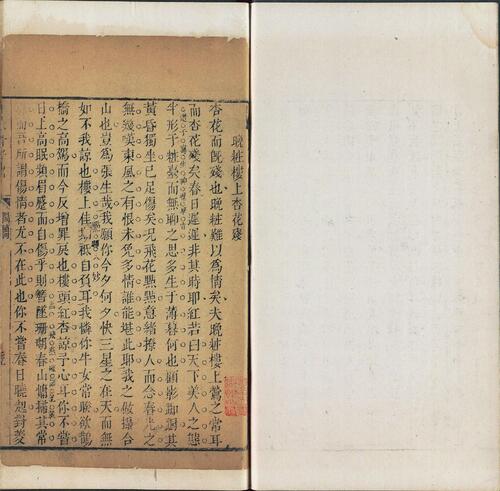 晚粧樓上杏花殘
杏花而既殘也晚粧難以爲情矣夫晚粧樓上鶯之常耳
而杏花殘矣春日遲遲非其時耶紅若曰天下美人之態
半形于粧臺而無聊之思多生于薄暮何也顧影卹鬪其
黃昏獨坐已足傷矣况飛花點點意緒撩人而念春光之
無幾嘆東風之有恨未免多情誰能堪此耶我之做撮合
山也豈爲張生哉我願你今夕何夕快三星之在天而無
如不我諒也樓上佳期秪自負耳我憐你牛女常暌欲鵲
橋之高駕而今反增罪戾也樓頭紅杏諒子心耳你不嘗
日上高眠頻眉蹙而自傷乎則簪墜珊瑚春山慵掃其常
而吾所謂傷情者尤不在此也你不嘗春日曉起對菱